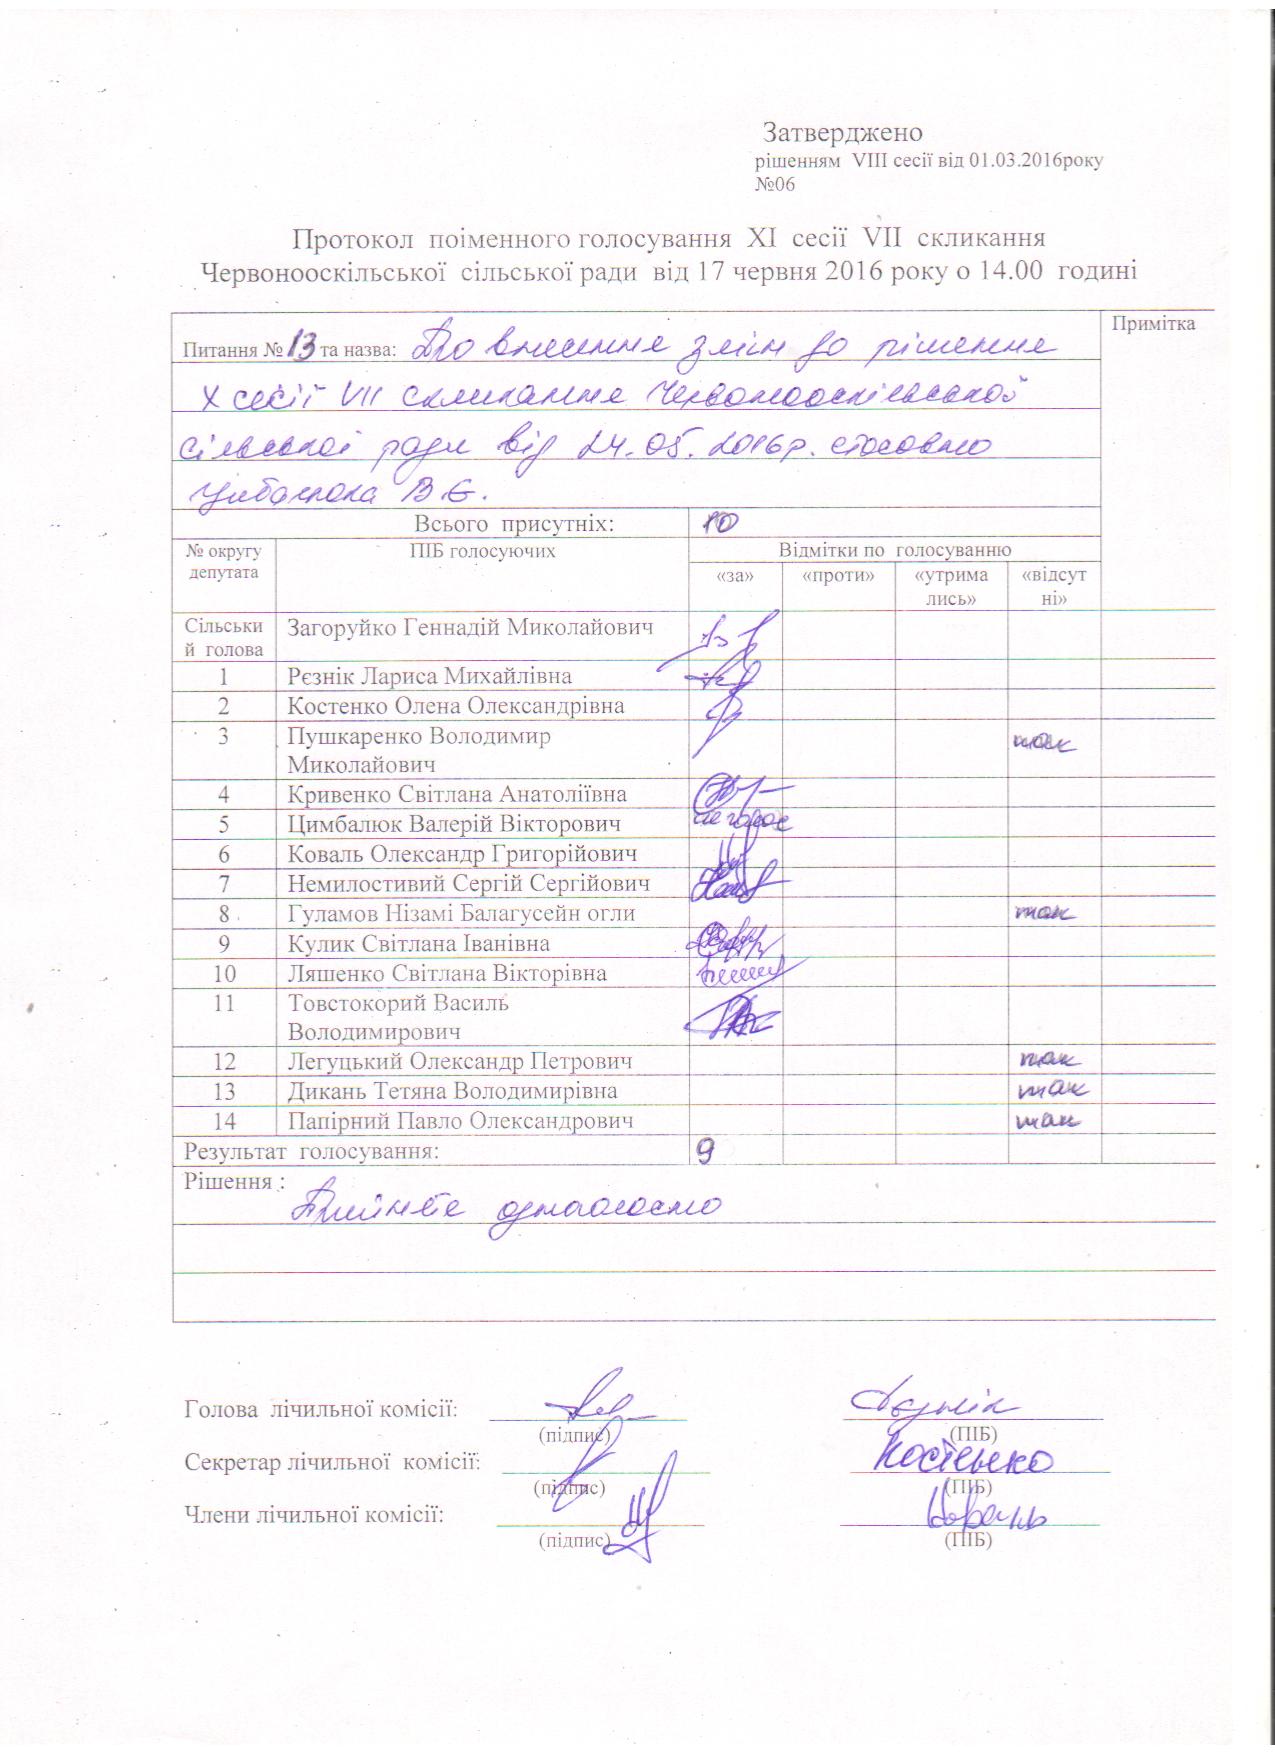 Затверджено
рішенням VIII сесії від 01.03.2016року
№06
Протокол поіменного голосування XI сесії VII скликання
Червонооскільської сільської ради від 17 червня 2016 року о 14.00 годині
Питання № 13 та назва: Про внесення змін до рішення
Примітка
X сесії VII скликання Червонооскільської
сільської ради від 24.05.2016р. стосовно
В.Є.
Всього присутніх: 10
№ округу депутата
ПІБ голосуючих
Відмітки по голосуванню
«за» «проти» «утрима лись» «відсут ні»
Сільськи й голова Загоруйко Геннадій Миколайович
1 Рєзнік Лариса Михайлівна
2 Костенко Олена Олександрівна
3 Пушкаренко Володимир Миколайович так
4 Кривенко Світлана Анатоліївна
5 Цимбалюк Валерій Вікторович не голос
6 Коваль Олександр Григорійович
7 Немилостивий Сергій Сергійович
8 Гуламов Нізамі Балагусейн огли так
9 Кулик Світлана Іванівна
10 Ляшенко Світлана Вікторівна
11 Товстокорий Василь Володимирович
12 Легуцький Олександр Петрович так
13 Дикань Тетяна Володимирівна так
14 Папірний Павло Олександрович так
Результат голосування: 9
Рішення :
Прийнято одноголосно
Голова лічильної комісії: Рєзнік
(підпис) (ПІБ)
Секретар лічильної комісії: Костенко
(підпис) (ПІБ)
Члени лічильної комісії: Коваль
(підпис) (ПІБ)